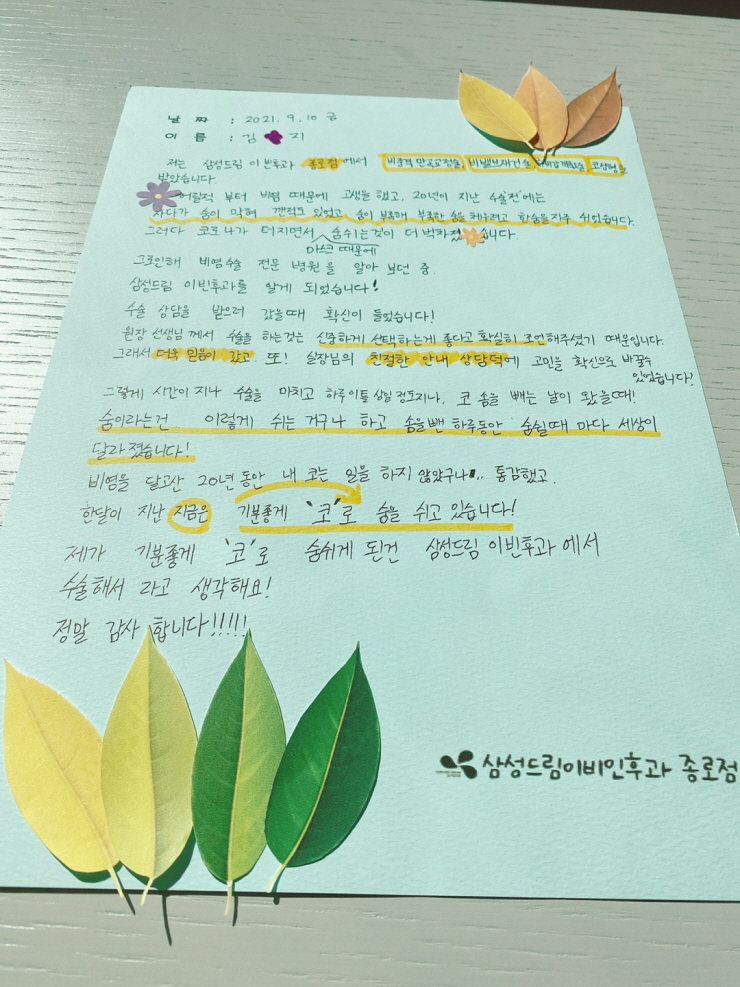 날 짜 : 2021. 9. 10 금
이 름 : 김 지
저는 삼성드림 이빈후과 종로점에서 비중격 만곡교정술, 비밸브재건술, 코성형을
받았습니다.
어릴적 부터 비염 때문에 고생을 했고, 20년이 지난 수술전에는
자다가 숨이 막혀 깬적도 있었고 숨이 부족해 부족한 숨을 채우려고 한숨을 자주 쉬었습니다.
그러다 코로나가 터지면서 숨쉬는것이 더 벅차졌습니다.
마스크 때문에
그로인해 비염수술 전문 병원을 알아 보던 중
삼성드림 이빈후과를 알게 되었습니다!
수술 상담을 받으러 갔을때 확신이 들었습니다!
원장 선생님께서 수술을 하는것은 신중하게 선택하는게 좋다고 확실히 조언해주셨기 때문입니다.
그래서 더욱 믿음이 갔고 또! 실장님의 친절한 안내 상담덕에 고민을 확신으로 바꿀수
있었습니다!
그렇게 시간이 지나 수술을 마치고 하루이틀 지나, 코 솜을 빼는 날이 왔을때!
숨이라는건 이렇게 쉬는 거구나 하고 솜을뺀 하루동안 숨쉴때 마다 세상이
달라졌습니다!
비염을 달고산 20년동안 내 코는 일을 하지 않았구나.. 통감했고.
한달이 지난 지금은 기분좋게 '코'로 숨을 쉬고 있습니다!
제가 기분좋게 '코'로 숨쉬게 된건 삼성드림 이빈후과에서
수술해서 라고 생각해요!
정말 감사 합니다!!!!!
삼성드림이비인후과 종로점